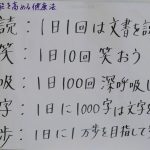 を高める健康法
読：1日1回は文書を読
笑：1日10回 笑おう
吸：1日100回 深呼吸し
字：1日に1000字は文字を
歩：1日に1万歩を目指して